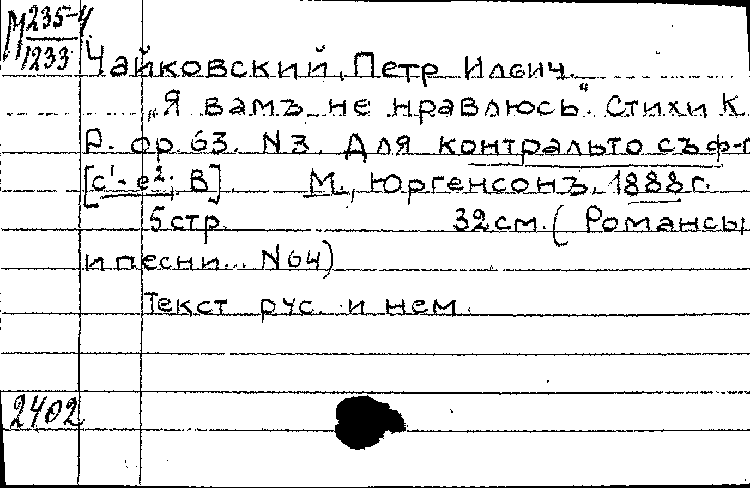 М 235-4
1233
Чайковский, Петр Ильич.
„Я вамъ не нравлюсь". Стихи К.
Р. ор. 63. N3. Для контральто съ ф-п
[c¹-e². B]. М., Юргенсонъ, 1888 г.
5 стр. 32 см. (Романсы
и песни... N64)
Текст рус. и нем.
2402